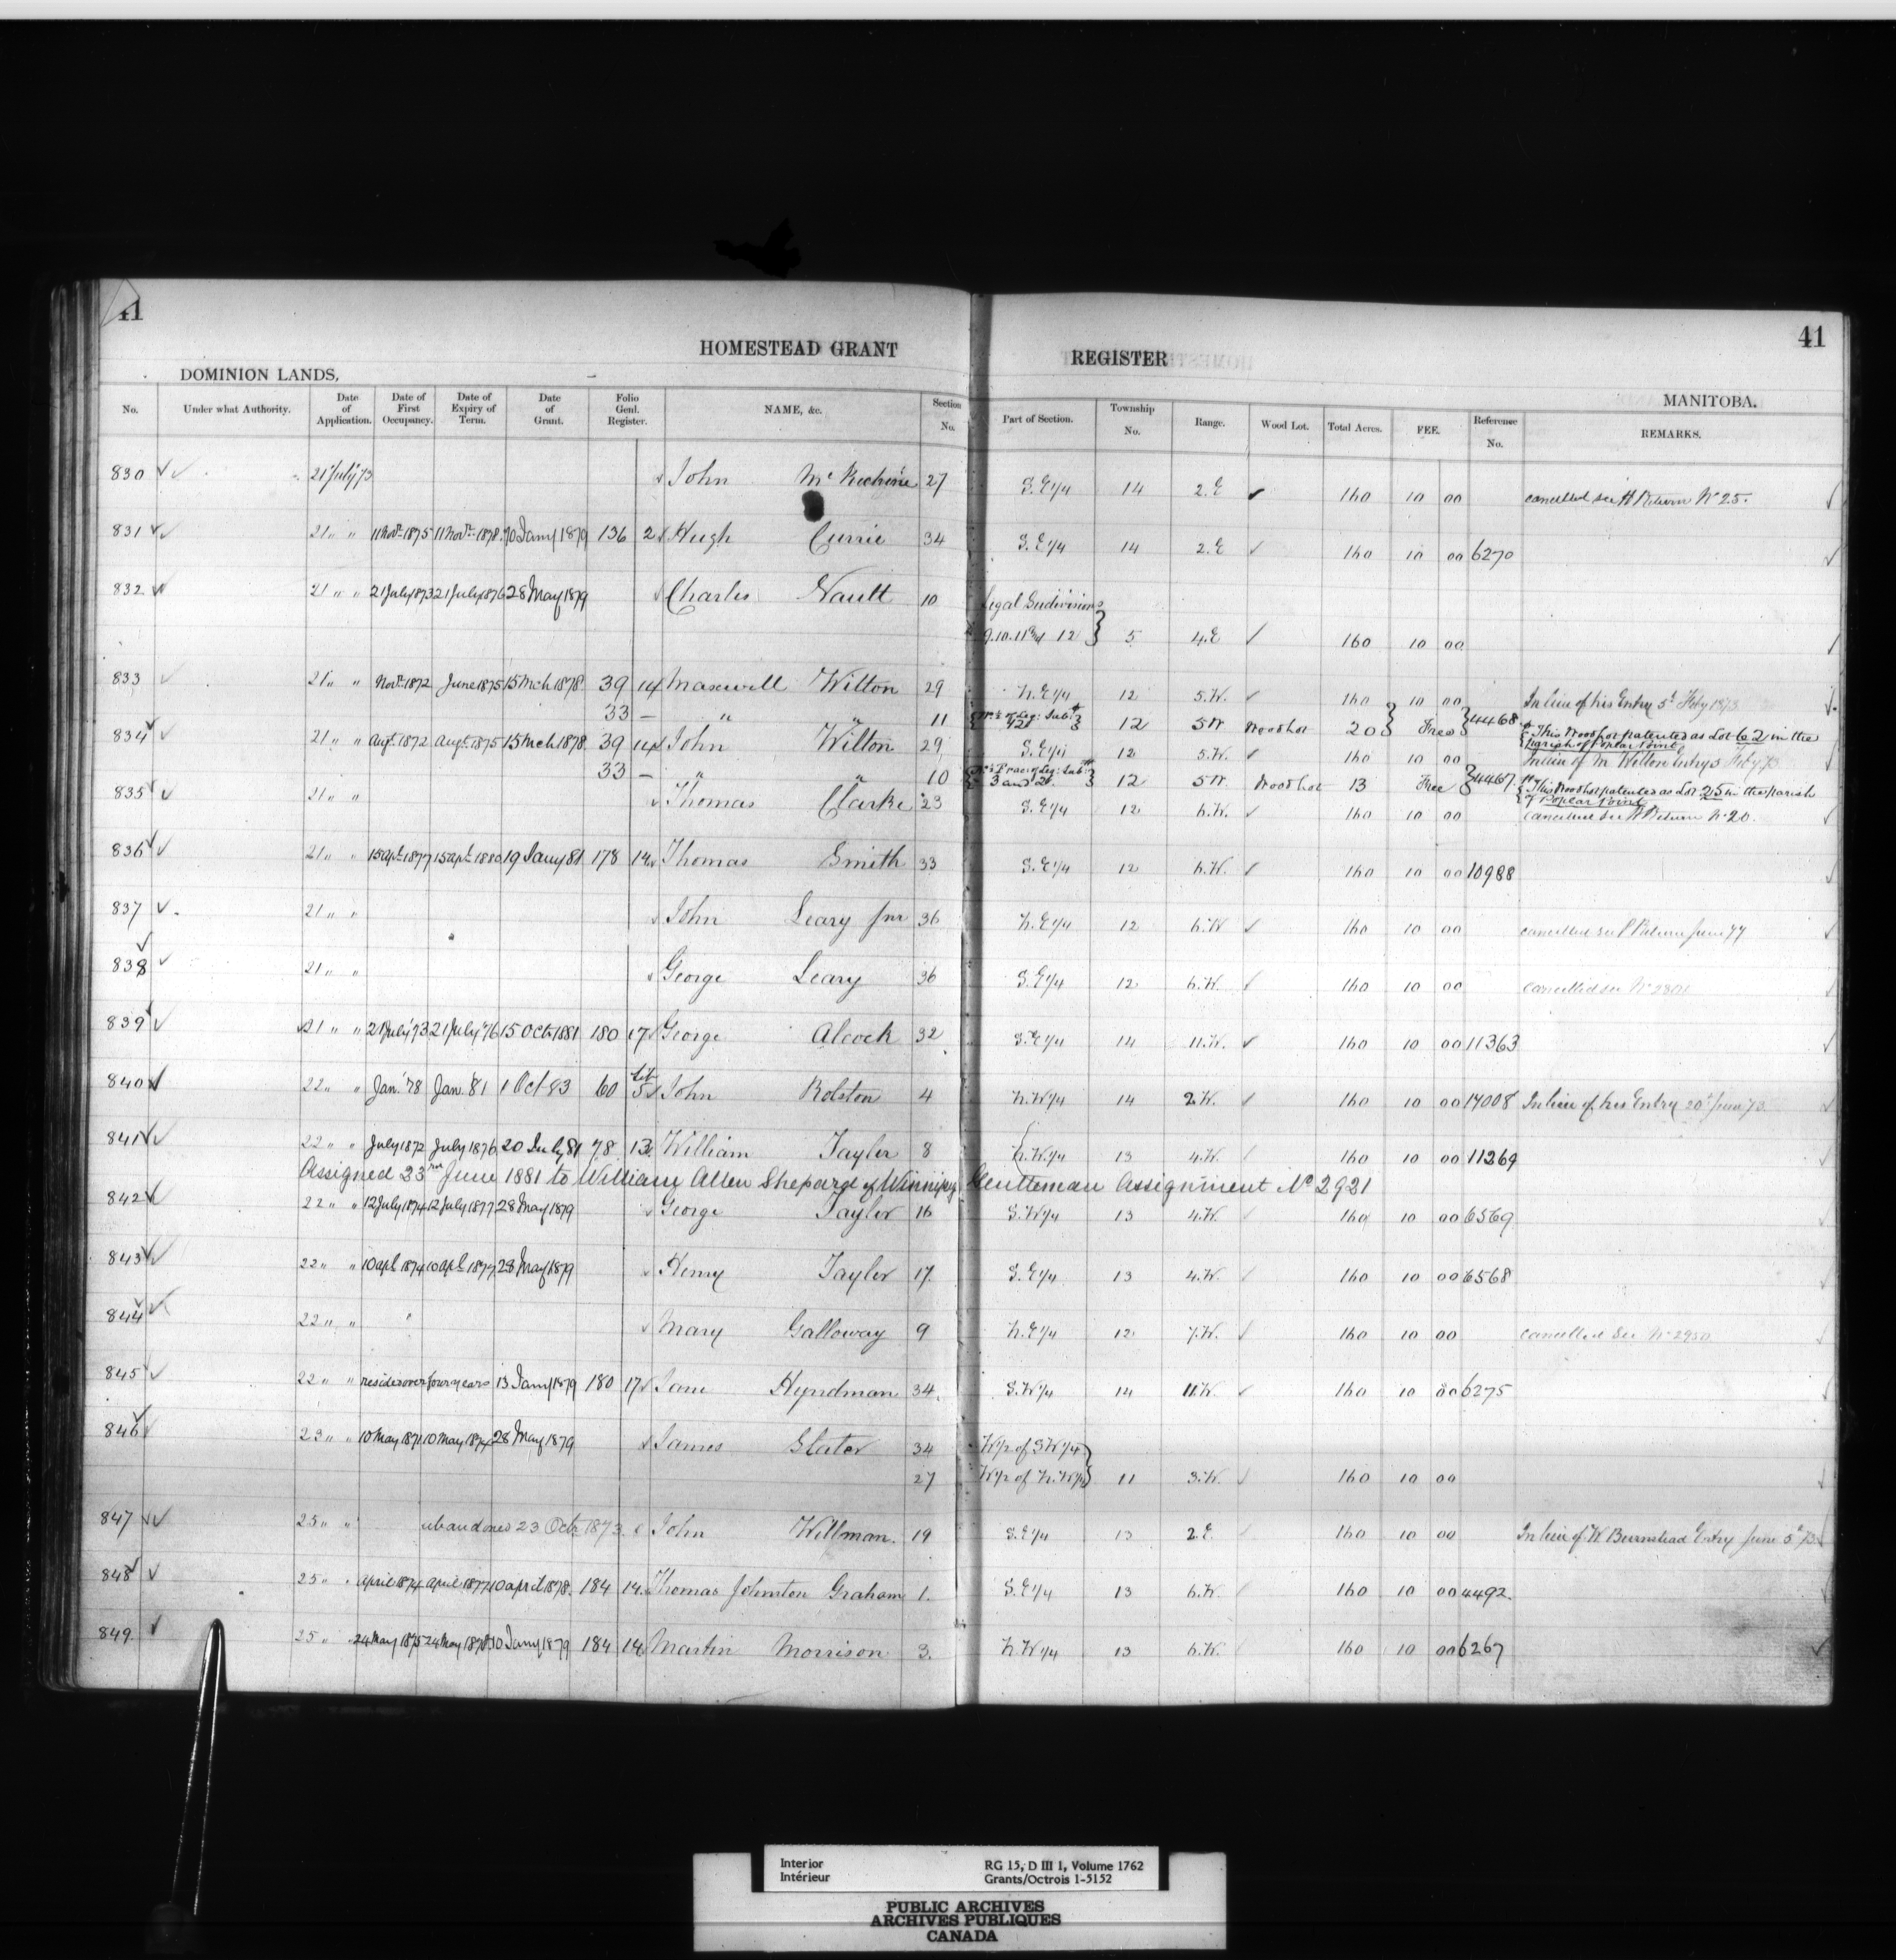 41
41
HOMESTEAD GRANT REGISTER
DOMINION LANDS, MANITOBA.
No. Under what Authority. Date of Application. Date of First Occupancy. Date of Expiry of Term. Date of Grant. Folio Genl. Register. NAME, &c. Section No. Part of Section. Township No. Range. Wood Lot. Total Acres. FEE. Reference No. REMARKS.
830 21 July 73 John Mc 27 S.E 1/4 14 2.E 160 10 00 cancelled see H Return No 25.
831 21 " " 11 Novr 1875 11 Novr 1878 10 Jany 1879 136 2 Hugh Currie 34 S.E 1/4 14 2.E 160 10 00 6270
832 21 " " 21 July 1873 21 July 1876 28 May 1879 Charles Nault 10 Legal Sudivisions
9.10.11 and 12 } 5 4.E 160 10 00
833 21 " " Novr 1872 June 1875 15 Mch 1878 39 14 Maxwell Wilton 29 N.E 1/4 12 5.W. 160 10 00 In lieu of his Entry 5th Feby 1873
33 — " " 11 12 5 W Wood lot 20 } Free } 4468. This Wood lot patented as Lot 62 in the Parish of Poplar Point
834 21 " " Augt 1872 Augt 1875 15 Mch 1878 39 14 John Wilton 29 S.E 1/4 12 5.W. 160 10 00 In lieu of M Wilton Entry 5 Feby 73
33 — " " 10 3 and 12 5 W Wood lot 13 Free } 4467. This Wood lot patented as Lot 25 in the parish of Poplar Point
835 21 " " Thomas Clarke 23 S.E 1/4 12 6.W. 160 10 00 cancelled see H Return No 20.
836 21 " " 15 Apl 1877 15 Apl 1880 19 Jany 81 178 14 Thomas Smith 33 S.E 1/4 12 6.W. 160 10 00 10988
837 21 " " John Leary Jnr 36 N.E 1/4 12 6.W 160 10 00 cancelled see P Return June 77
838 21 " " George Leary 36 S.E 1/4 12 6.W. 160 10 00 cancelled see No
839 21 " " 21 July '73 21 July '76 15 Oct 1881 180 17 George Alcock 32 S.E 1/4 14 11.W. 160 10 00 11363
840 22 " " Jan. '78 Jan. '81 1 Oct 83 60 5 John Rolston 4 N.W 1/4 14 2.W. 160 10 00 17008 In lieu of his Entry 20th June 73
841 22 " " July 1872 July 1876 20 July 81 78 13 William Taylor 8 N.W 1/4 13 4.W. 160 10 00 11269
Assigned 23rd June 1881 to William Allen Shepard of Winnipeg Gentleman Assignment No 2921
842 22 " " 12 July 1874 12 July 1877 28 May 1879 George Taylor 16 S.W 1/4 13 4.W. 160 10 00 6569
843 22 " " 10 Apl 1874 10 Apl 1877 28 May 1879 Henry Taylor 17. S.E 1/4 13 4.W. 160 10 00 6568
844 22 " " Mary Galloway 9 N.E 1/4 12 7.W. 160 10 00 cancelled see No 2950
845 22 " " resides over four years 13 Jany 1879 180 17 Jane Hyndman 34. S.W 1/4 14 11.W. 160 10 00 6275
846 23 " " 10 May 1871 10 May 1874 28 May 1879 James Slater 34 W 1/2 of S W 1/4
27 W 1/2 of N.W 1/4 } 11 3.W. 160 10 00
847 25 " " abandoned 23 Octr 1873 John Willman. 19 S.E 1/4 13 2.E 160 10 00 In lieu of W Burnstead Entry June 5th 73
848 25 " " April 1874 April 1877 10 April 1878. 184 14 Thomas Johnston Graham 1. S.E 1/4 13 6.W. 160 10 00 4492.
849. 25 " " 24 May 1875 24 May 1878 10 Jany 1879 184 14 Martin Morrison 3. N.W 1/4 13 6.W. 160 10 00 6267
Interior
Intérieur
RG 15, D III 1, Volume 1762
Grants/Octrois 1-5152
PUBLIC ARCHIVES
ARCHIVES PUBLIQUES
CANADA